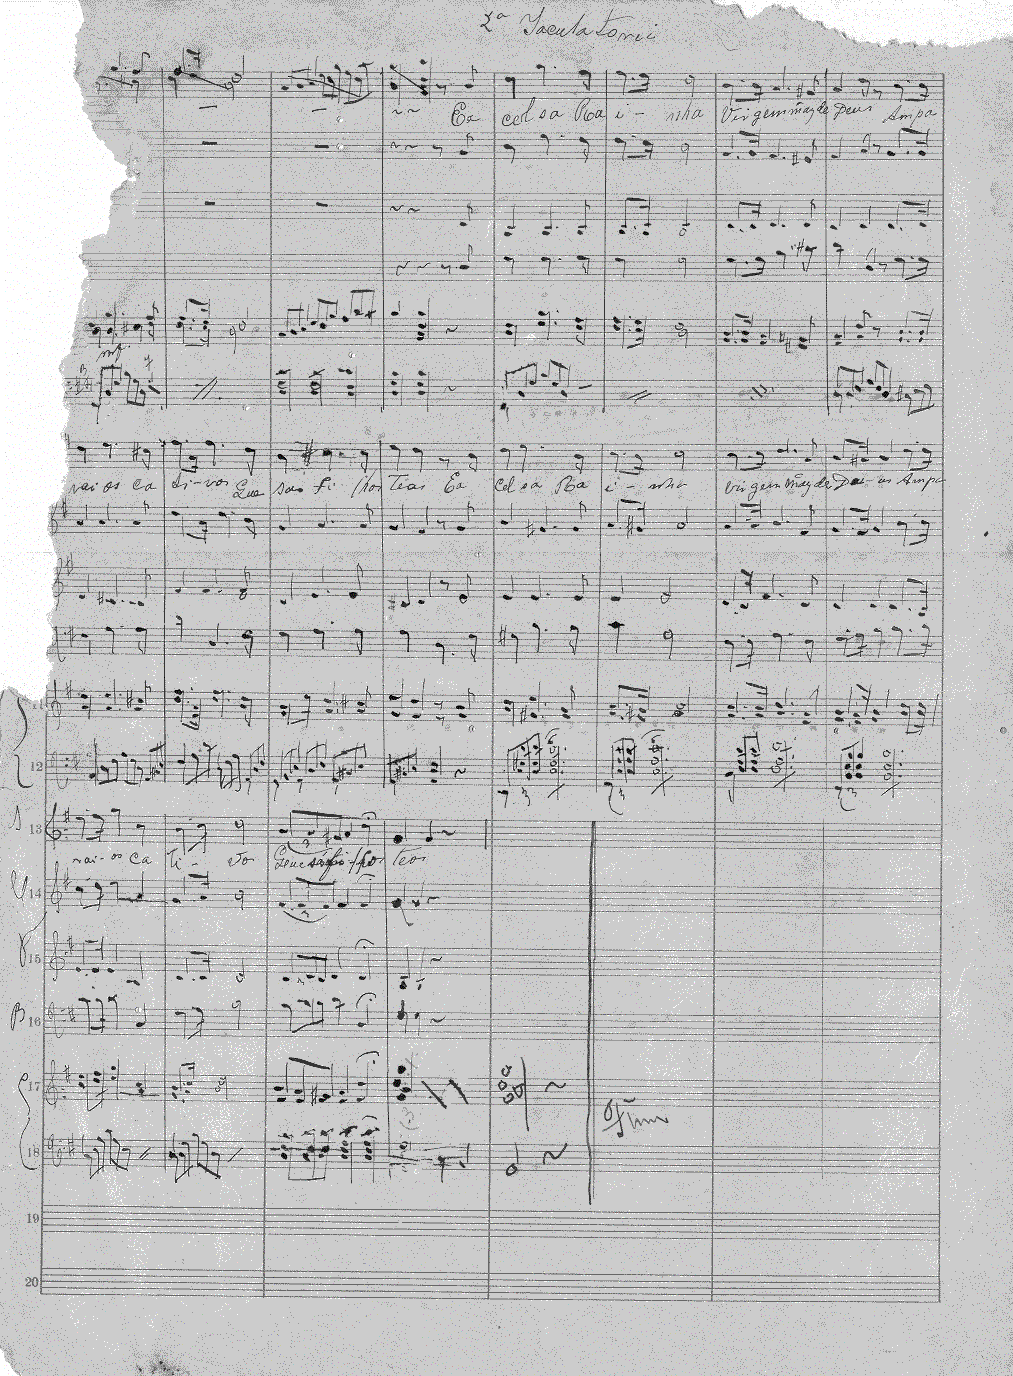 2ª Jaculatorii
Ea celsa Ra i - nha Virgem mãy de Deus Ampa
mf
rai os ca ti-vos Que sao fi - hos teos Ea cel sa Ra i - nha Virgem mãy de De-us Ampa
12
S 13
rai-os ca ti - vos Que são fi-hos teos
14
15
B 16
17
Fim
18
19
20